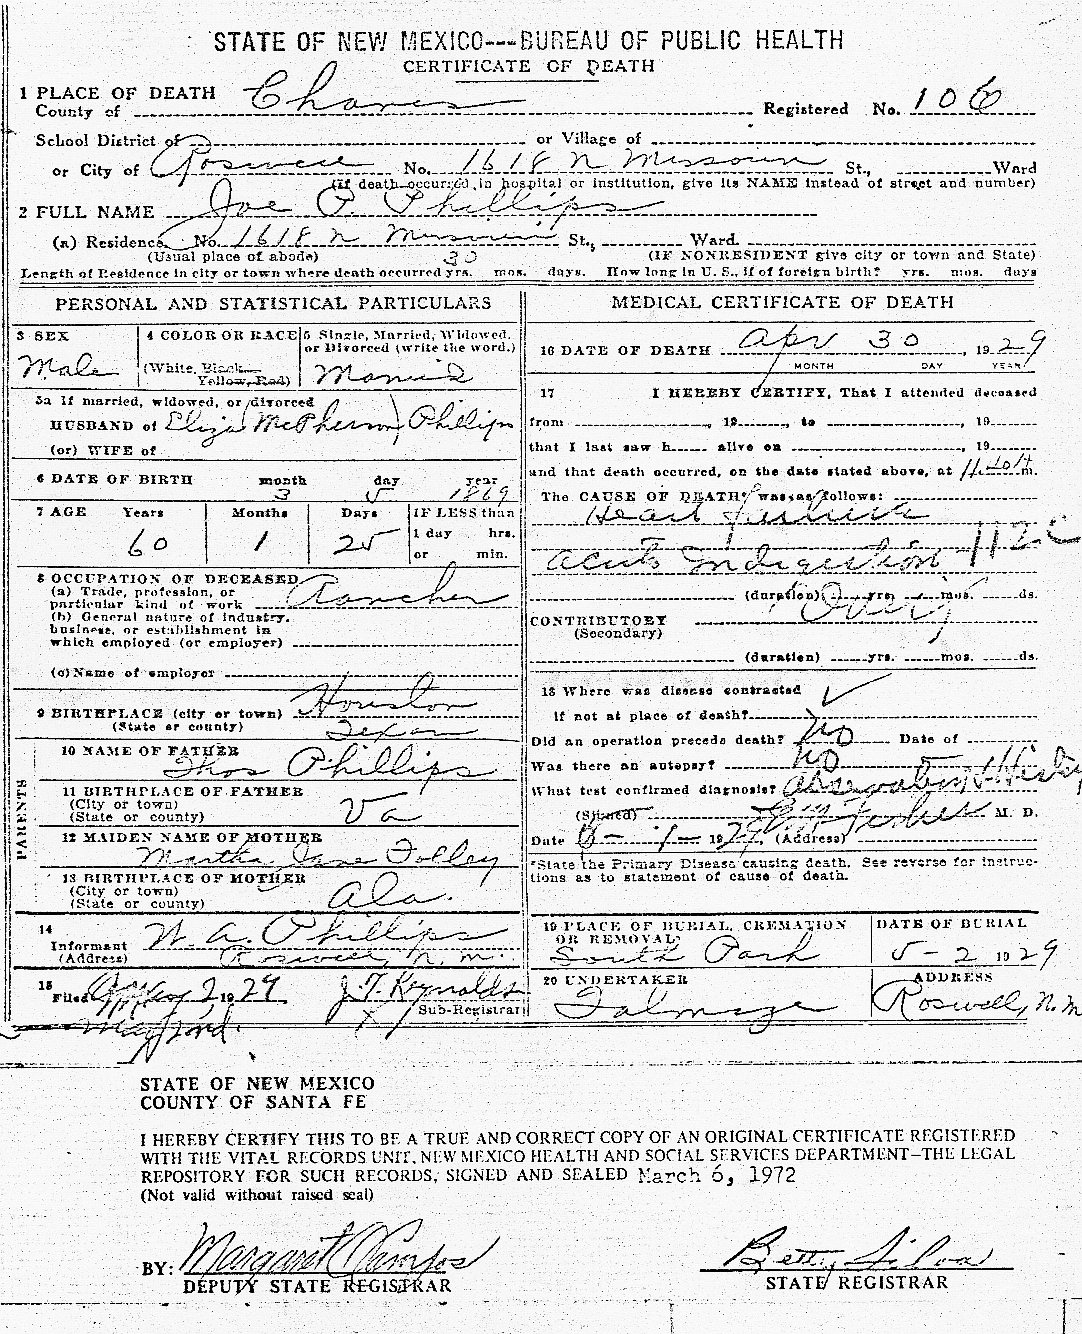 STATE OF NEW MEXICO---BUREAU OF PUBLIC HEALTH
CERTIFICATE OF DEATH
1 PLACE OF DEATH
County of Chaves Registered No. 106
School District of or Village of
or City of Roswell No. 1618 N Missouri St., Ward
(If death occurred in hospital or institution, give its NAME instead of street and number)
2 FULL NAME Joe P. Phillips
(a) Residence. No. 1618 N Missouri St., Ward.
(Usual place of abode) (IF NONRESIDENT give city or town and State)
Length of Residence in city or town where death occurred 30 yrs. mos. days. How long in U. S., if of foreign birth? yrs. mos. days
PERSONAL AND STATISTICAL PARTICULARS
3 SEX
Male
4 COLOR OR RACE
(White, Black, Yellow, Red)
5 Single, Married, Widowed, or Divorced (write the word.)
Married
5a If married, widowed, or divorced
HUSBAND of Eliza (McPherson) Phillips
(or) WIFE of
6 DATE OF BIRTH month day year
3 5 1869
7 AGE Years Months Days IF LESS than
60 1 25 1 day hrs.
or min.
8 OCCUPATION OF DECEASED
(a) Trade, profession, or
particular kind of work Rancher
(b) General nature of industry,
business, or establishment in
which employed (or employer)
(c) Name of employer
9 BIRTHPLACE (city or town) Houston
(State or county) Texas
PARENTS
10 NAME OF FATHER
Thos Phillips
11 BIRTHPLACE OF FATHER
(City or town)
(State or county) Va
12 MAIDEN NAME OF MOTHER
Martha Jane Tolley
13 BIRTHPLACE OF MOTHER
(City or town)
(State or county) Ala.
14
Informant W. A. Phillips
(Address) Roswell, N. M.
15
Filed May 2 1929 J. F. Reynolds
Sub-Registrar
MEDICAL CERTIFICATE OF DEATH
16 DATE OF DEATH Apr 30, 1929
MONTH DAY YEAR
17 I HEREBY CERTIFY, That I attended deceased
from , 19 , to , 19
that I last saw h alive on , 19
and that death occurred, on the date stated above, at m.
The CAUSE OF DEATH* was as follows:
Heart failure
acute Indigestion 112
(duration) yrs. mos. ds.
CONTRIBUTORY
(Secondary)
(duration) yrs. mos. ds.
18 Where was disease contracted
If not at place of death?
Did an operation precede death? No Date of
Was there an autopsy? No
What test confirmed diagnosis? Observation & History
(Signed) M. D.
Date 1929, (Address)
*State the Primary Disease causing death. See reverse for instruc-
tions as to statement of cause of death.
19 PLACE OF BURIAL, CREMATION OR REMOVAL
South Park
DATE OF BURIAL
5-2 1929
20 UNDERTAKER
Talmage
ADDRESS
Roswell, N.M
STATE OF NEW MEXICO
COUNTY OF SANTA FE
I HEREBY CERTIFY THIS TO BE A TRUE AND CORRECT COPY OF AN ORIGINAL CERTIFICATE REGISTERED
WITH THE VITAL RECORDS UNIT, NEW MEXICO HEALTH AND SOCIAL SERVICES DEPARTMENT—THE LEGAL
REPOSITORY FOR SUCH RECORDS, SIGNED AND SEALED March 6, 1972
(Not valid without raised seal)
BY: Margaret Campos
DEPUTY STATE REGISTRAR
Betty Silva
STATE REGISTRAR